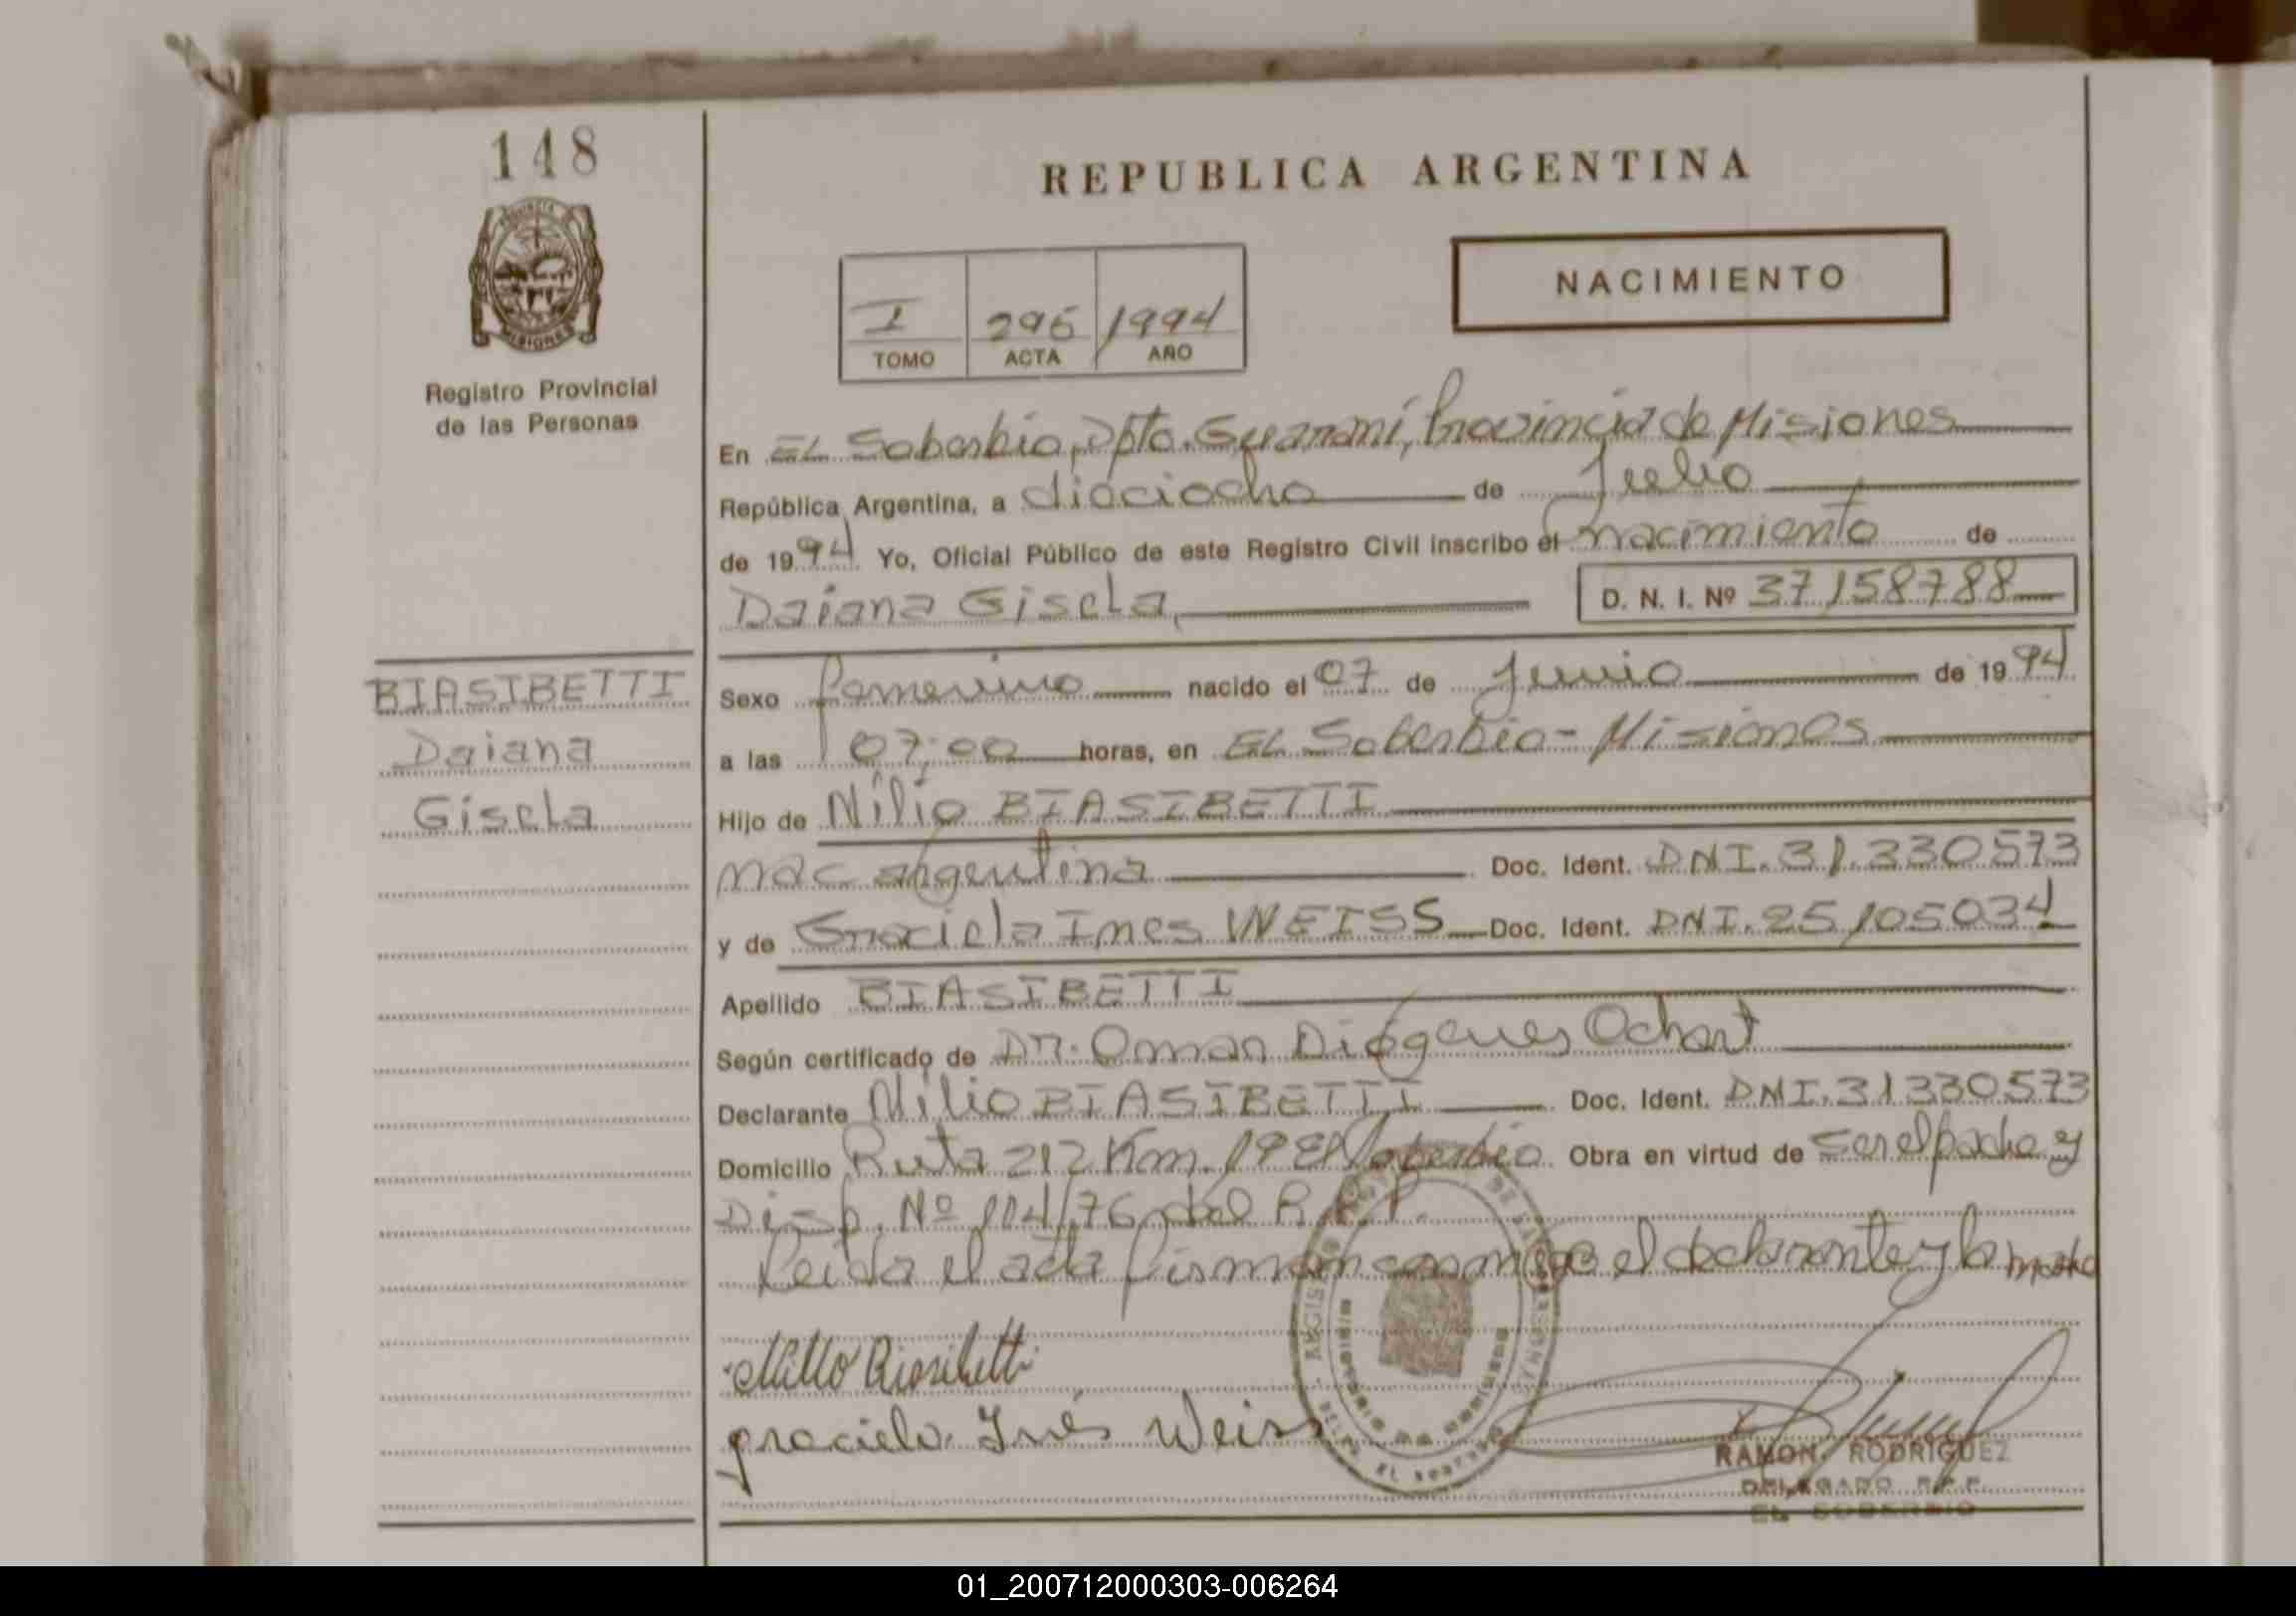 148
PROVINCIA DE
MISIONES
Registro Provincial
de las Personas
BIASIBETTI
Daiana
Gisela
REPUBLICA ARGENTINA
NACIMIENTO
I 296 1994
TOMO ACTA AÑO
En EL Soberbio, Dpto. Guaraní, Provincia de Misiones
República Argentina, a dieciocho de Julio
de 1994 Yo, Oficial Público de este Registro Civil inscribo el nacimiento de
Daiana Gisela, D. N. I. Nº 37158788
Sexo femenino nacido el 07 de Junio de 1994
a las 07,00 horas, en EL Soberbio - Misiones
Hijo de Nilio BIASIBETTI
nac argentina Doc. Ident. DNI. 31.330573
y de Graciela Ines WEISS Doc. Ident. DNI. 25105034
Apellido BIASIBETTI
Según certificado de Dr. Omar Diógenes Ochart
Declarante Nilio BIASIBETTI Doc. Ident. DNI. 31330573
Domicilio Ruta 212 Km. 19 El Soberbio Obra en virtud de ser el padre y
Disp. Nº 114/76 del R.P.P.
Leida el acta firman conmigo el declarante y la madre
Nilio Biasibetti
graciela Inés Weiss
RAMON RODRIGUEZ
DELEGADO R.P.P.
EL SOBERBIO
01_200712000303-006264